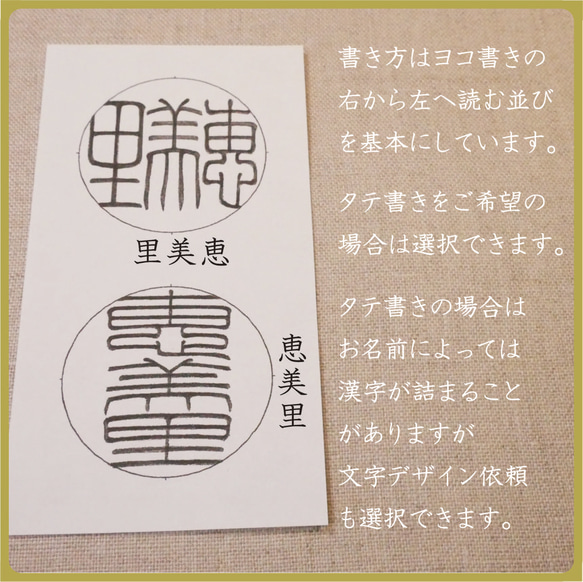 里美恵
里美恵
恵美里
恵美里
書き方はヨコ書きの
右から左へ読む並び
を基本にしています。
タテ書きをご希望の
場合は選択できます。
タテ書きの場合は
お名前によっては
漢字が詰まること
がありますが
文字デザイン依頼
も選択できます。